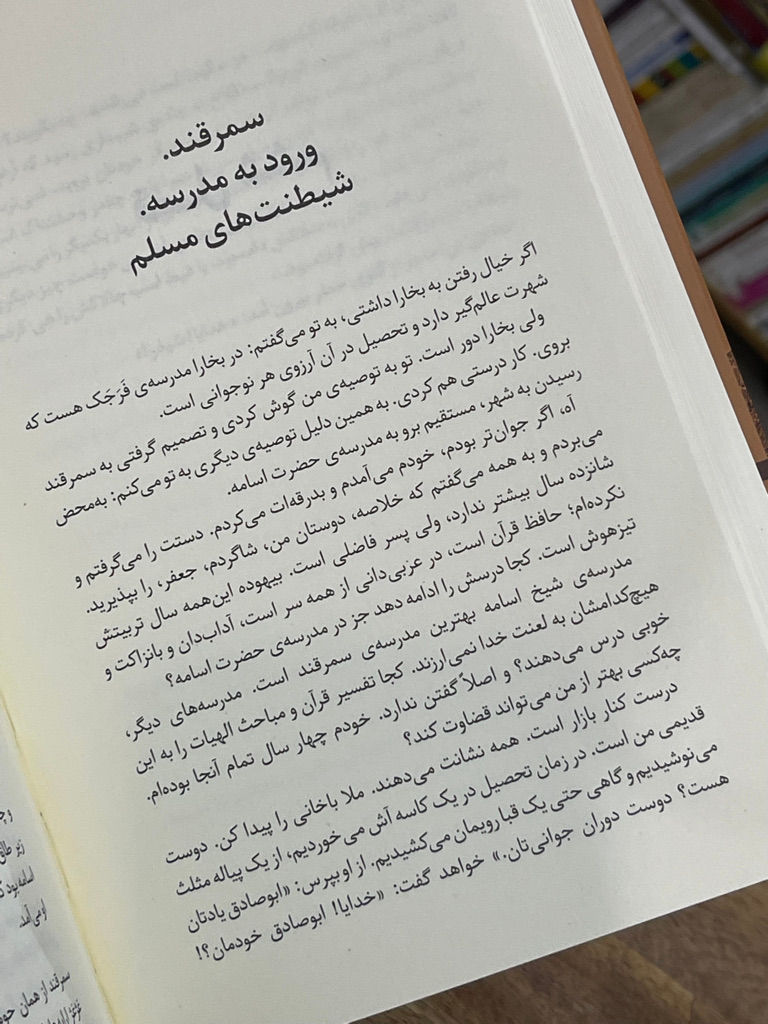 سمرقند.
ورود به مدرسه.
شیطنت‌های مسلم
اگر خیال رفتن به بخارا داشتی، به تو می‌گفتم: در بخارا مدرسه‌ی فَرَجَک هست که
شهرت عالم‌گیر دارد و تحصیل در آن آرزوی هر نوجوانی است.
ولی بخارا دور است. تو به توصیه‌ی من گوش کردی و تصمیم گرفتی به سمرقند
بروی. کار درستی هم کردی. به همین دلیل توصیه‌ی دیگری به تو می‌کنم: به‌محض
رسیدن به شهر، مستقیم برو به مدرسه‌ی حضرت اسامه.
آه، اگر جوان‌تر بودم، خودم می‌آمدم و بدرقه‌ات می‌کردم. دستت را می‌گرفتم و
می‌بردم و به همه می‌گفتم که خلاصه، دوستان من، شاگردم، جعفر، را بپذیرید.
شانزده سال بیشتر ندارد، ولی پسر فاضلی است. بیهوده این‌همه سال تربیتش
نکرده‌ام؛ حافظ قرآن است، در عربی‌دانی از همه سر است، آداب‌دان و بانزاکت و
تیزهوش است. کجا درسش را ادامه دهد جز در مدرسه‌ی حضرت اسامه؟
مدرسه‌ی شیخ اسامه بهترین مدرسه‌ی سمرقند است. مدرسه‌های دیگر،
هیچ‌کدامشان به لعنت خدا نمی‌ارزند. کجا تفسیر قرآن و مباحث الهیات را به این
خوبی درس می‌دهند؟ و اصلاً گفتن ندارد. خودم چهار سال تمام آنجا بوده‌ام.
چه‌کسی بهتر از من می‌تواند قضاوت کند؟
درست کنار بازار است. همه نشانت می‌دهند. ملا باخانی را پیدا کن. دوست
قدیمی من است. در زمان تحصیل در یک کاسه آش می‌خوردیم، از یک پیاله مثلث
می‌نوشیدیم و گاهی حتی یک قبا رویمان می‌کشیدیم. از او بپرس: «ابوصادق یادتان
هست؟ دوست دوران جوانی‌تان.» خواهد گفت: «خدایا! ابوصادق خودمان؟!
زیر طاق
اسامه بود
او می‌آمد.
سمرقند از همان